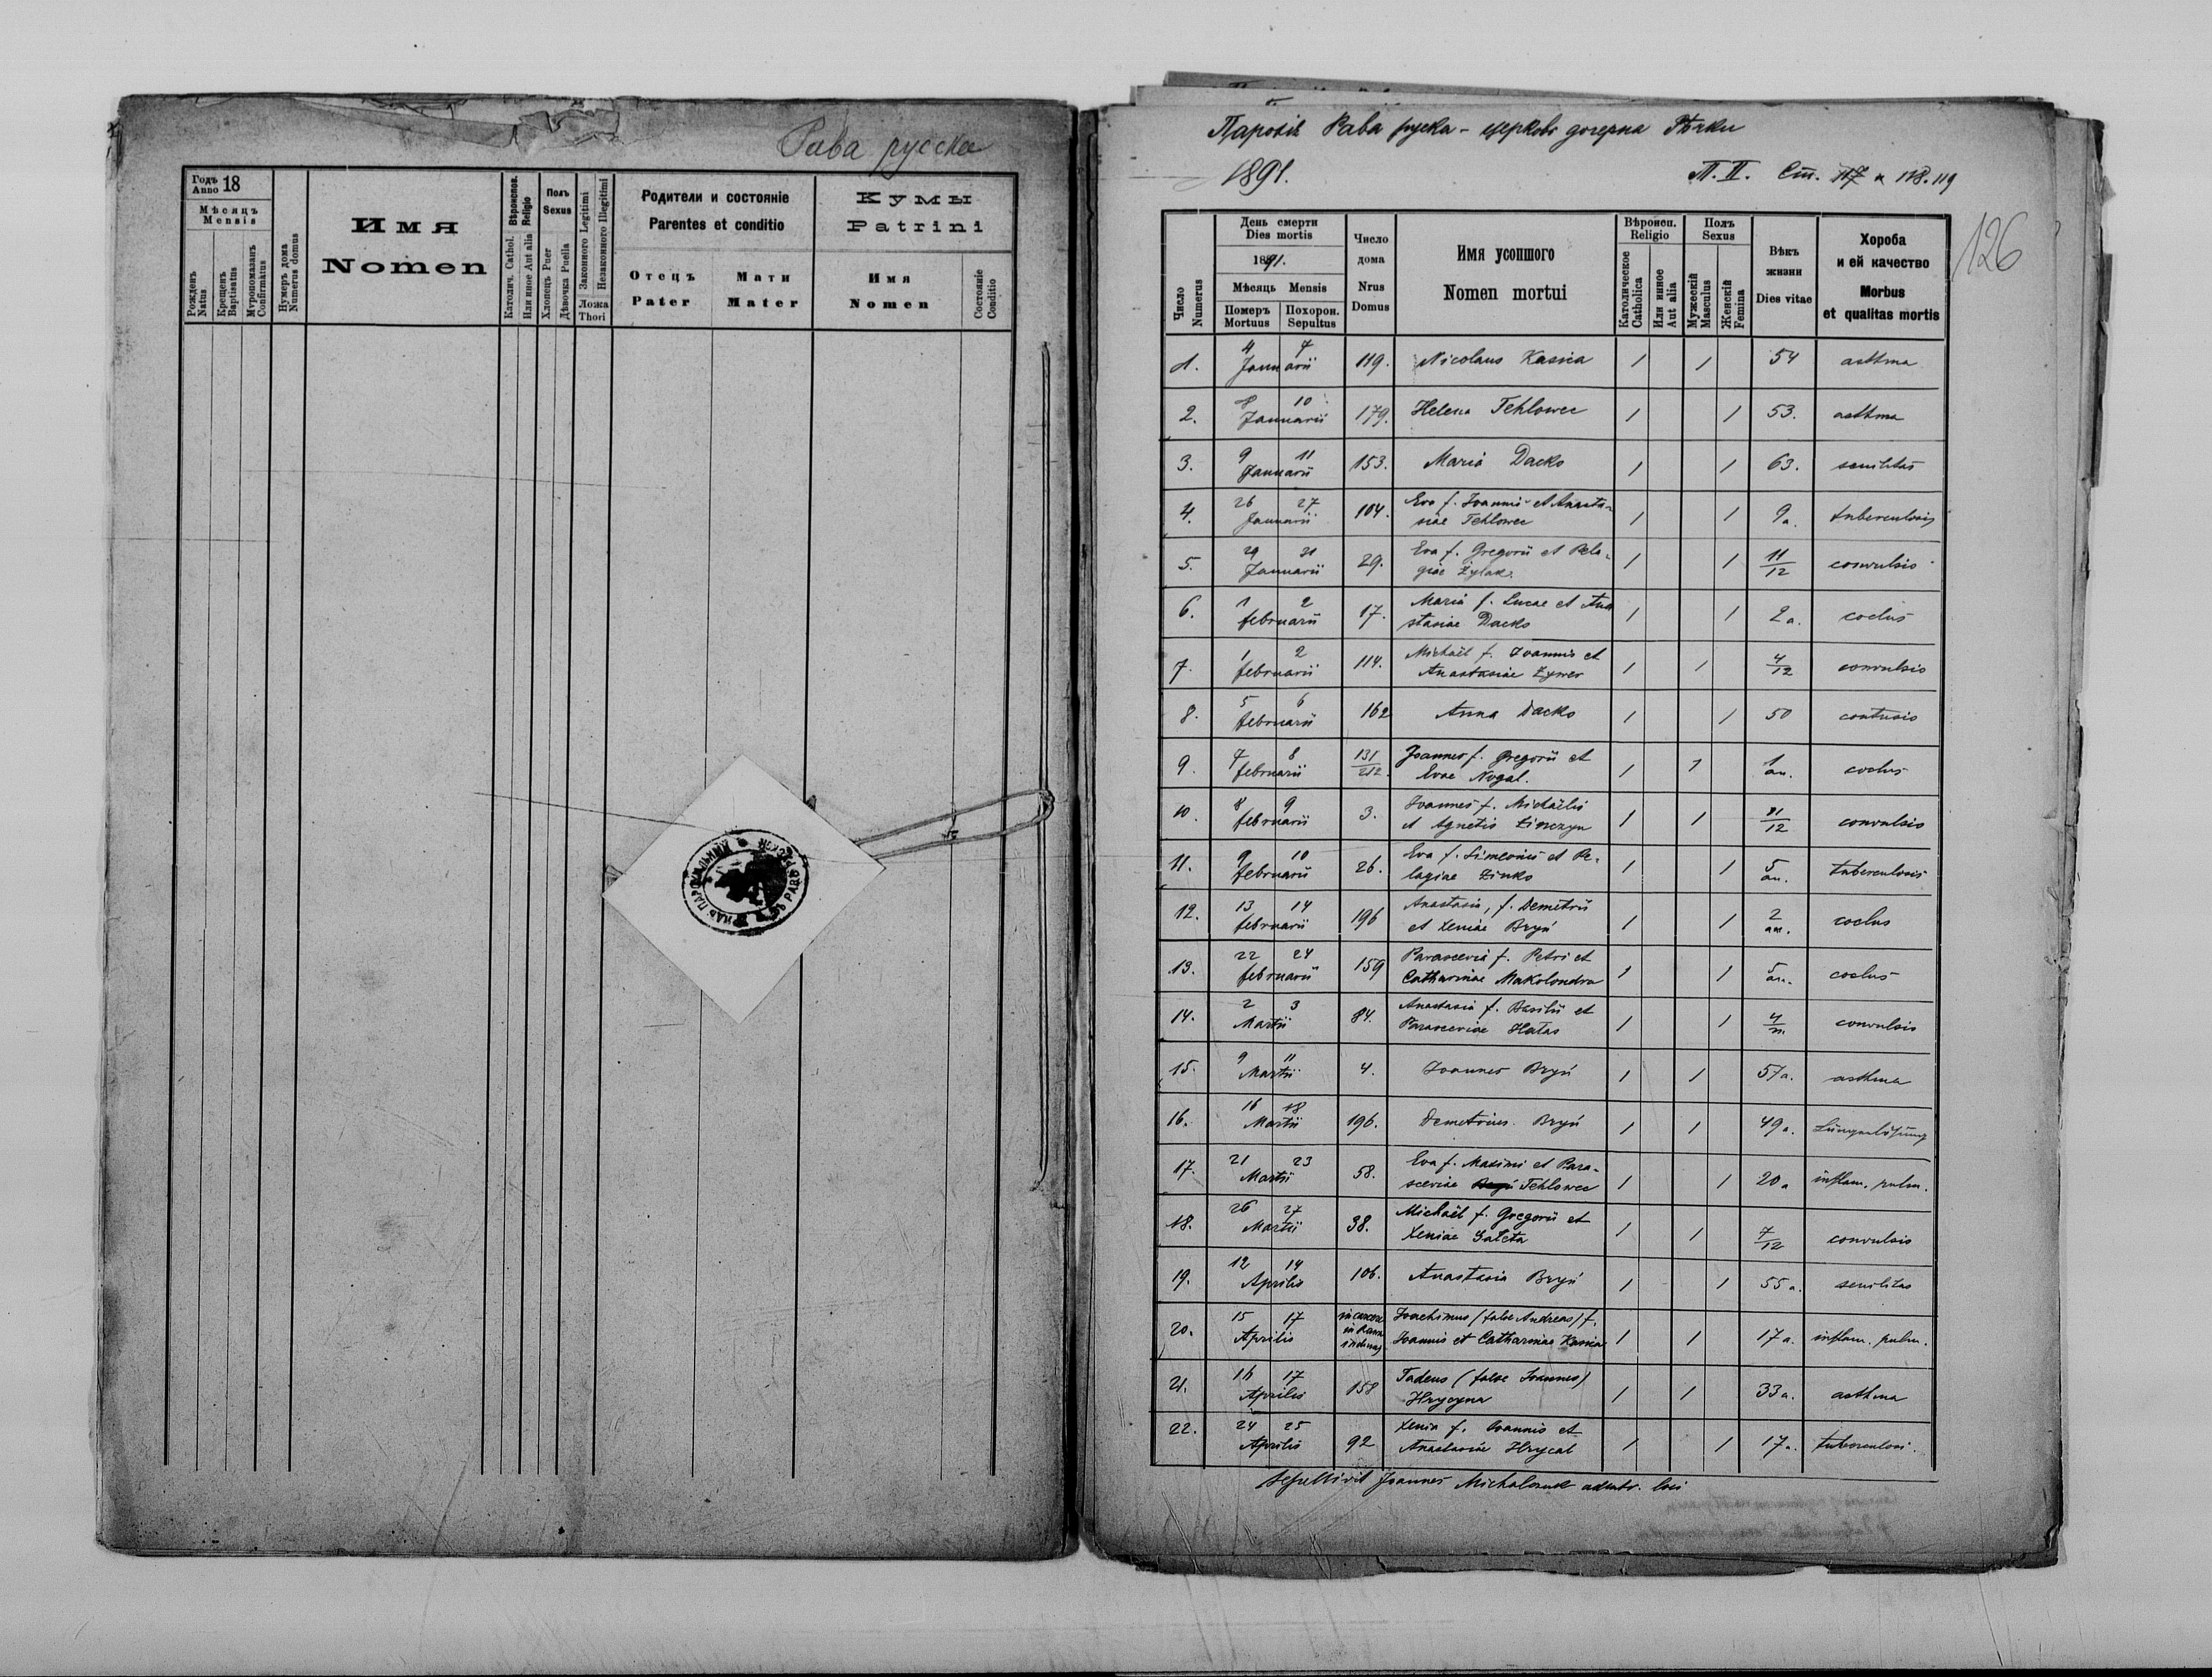 Рава русска
Годъ Anno 18
Мѣсяцъ Mensis
Рожденъ Natus
Крещенъ Baptisatus
Муропомазанъ Confirmatus
Нумеръ дома Numerus domus
Имя
Nomen
Вѣроиспов. Religio
Католич. Cathol.
Или иное Aut alia
Полъ Sexus
Хлопецъ Puer
Дѣвочка Puella
Законного Legitimi
Незаконного Illegitimi
Ложа Thori
Родители и состояніе
Parentes et conditio
Отецъ
Pater
Мати
Mater
Кумы
Patrini
Имя
Nomen
Состояніе
Conditio
Парохія Рава руска - церковь дочерна Рѣчки
1891.
Т. II. Ст. 117 118. 119
126
Число Numerus
День смерти
Dies mortis
1891.
Мѣсяць Mensis
Померъ Mortuus
Похорон. Sepultus
Число дома
Nrus Domus
Имя усопшого
Nomen mortui
Вѣроисп. Religio
Католическое Catholica
Или инное Aut alia
Полъ Sexus
Мужескій Masculus
Женскій Femina
Вѣкъ жизни
Dies vitae
Хороба
и ей качество
Morbus
et qualitas mortis
1. 4 7 Januarii 119. Nicolaus Kasica 1 1 54 asthma
2. 8 10 Januarii 179. Helena Tehlowec 1 1 53. asthma
3. 9 11 Januarii 153. Maria Dacko 1 1 63. senilitas
4. 26 27 Januarii 104. Eva f. Joannis et Anasta-
siae Tehlowec 1 1 9 a. tuberculosis
5. 29 31 Januarii 29. Eva f. Gregorii et Pela-
giae Żyłak 1 1 11/12 convulsio
6. 1 2 februarii 17. Maria f. Lucae et Ana
stasiae Dacko 1 1 2 a. coclus
7. 1 2 februarii 114. Michaël f. Joannis et
Anastasiae Żywer 1 1 4/12 convulsio
8. 5 6 februarii 162 Anna Dacko 1 1 50 contusio
9. 7 8 februarii 131/212 Joannes f. Gregorii et
Evae Nogal. 1 1 1 an. coclus
10. 8 9 februarii 3. Joannes f. Michaëlis
et Agnetis 1 1 11/12 convulsio
11. 9 10 februarii 26. Eva f. Simeonis et Pe-
lagiae Zinko 1 1 5 an. tuberculosis
12. 13 14 februarii 196 Anastasia, f. Demetrii
et Xeniae Bryń 1 1 2 an. coclus
13. 22 24 februarii 159 Parascevia f. Petri et
Catharinae Makolondra 1 1 5 an. coclus
14. 2 3 Martii 84. Anastasia f. Basilii et
Parasceviae Hatas 1 1 4/m. convulsio
15. 9 11 Martii 4. Joannes Bryń 1 1 57 a. asthma
16. 16 18 Martii 196. Demetrius Bryń 1 1 49 a.
17. 21 23 Martii 58. Eva f. Maximi et Para-
sceviae Tehlowec 1 1 20 a inflam. pulm.
18. 26 27 Martii 38. Michaël f. Gregorii et
Xeniae Sałeta 1 1 7/12 convulsio
19. 12 14 Aprilis 106. Anastasia Bryń 1 1 55 a. senilitas
20. 15 17 Aprilis in carcere in Rawa Joachimus (false Andreas) f.
Joannis et Catharinae Kasica 1 1 17 a. inflam. pulm.
21. 16 17 Aprilis 158 Tadeus (false Joannes)
Hrycyna 1 1 33 a. asthma
22. 24 25 Aprilis 92 Xenia f. Joannis et
Anastasiae Hrycal 1 1 17 a. tuberculosi.
Sepellivit Joannes admtr. loci